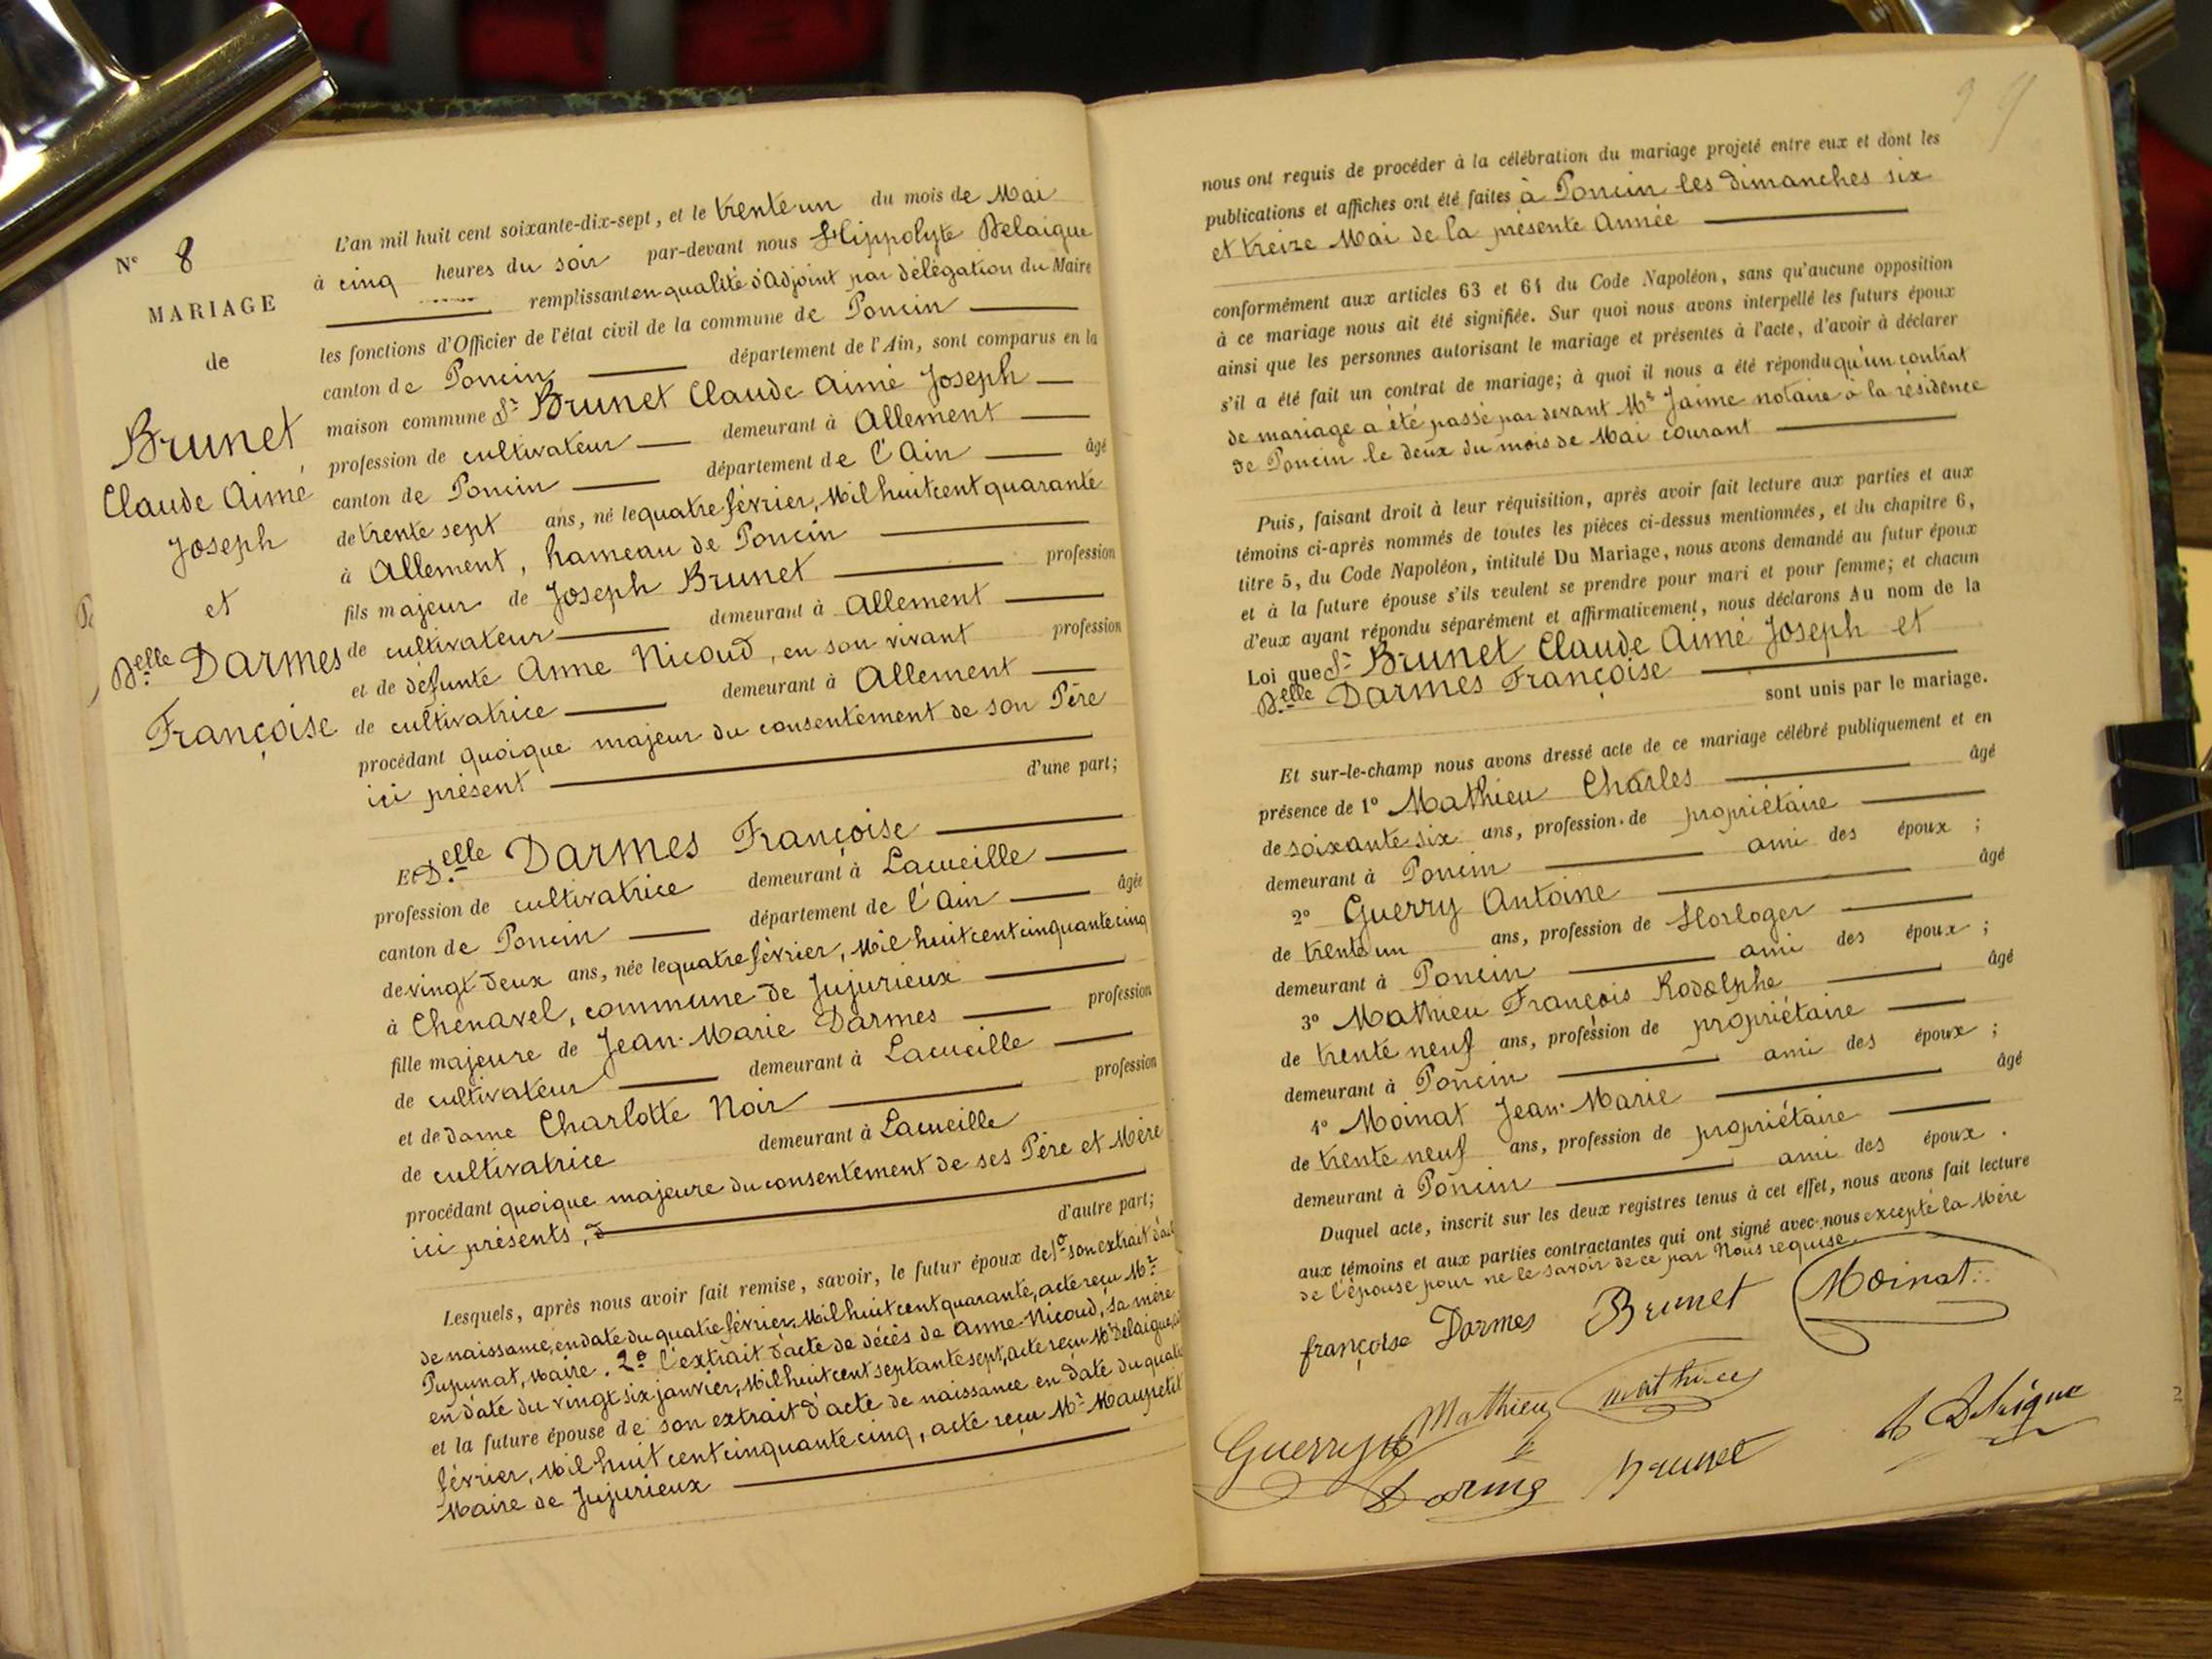 N° 8
MARIAGE
de
Brunet
Claude Aimé
Joseph
et
Delle Darmes
Françoise
L'an mil huit cent soixante-dix-sept, et le trente un du mois de Mai
à cinq heures du soir par-devant nous Hippolyte Delaigue
remplissant en qualité d'Adjoint par délégation du Maire
les fonctions d'Officier de l'état civil de la commune de Poncin
canton de Poncin département de l'Ain, sont comparus en la
maison commune Sr Brunet Claude Aimé Joseph
profession de cultivateur demeurant à Allement
canton de Poncin département de l'Ain âgé
de trente sept ans, né le quatre février, Mil huit cent quarante
à Allement, hameau de Poncin
fils majeur de Joseph Brunet profession
de cultivateur demeurant à Allement
et de défunte Anne Nicoud, en son vivant profession
de cultivatrice demeurant à Allement
procédant quoique majeur du consentement de son Père
ici présent d'une part;
Et Delle Darmes Françoise
profession de cultivatrice demeurant à Lacueille
canton de Poncin département de l'Ain âgée
de vingt deux ans, née le quatre février, Mil huit cent cinquante cinq
à Chenavel, commune de Jujurieux
fille majeure de Jean-Marie Darmes profession
de cultivateur demeurant à Lacueille
et de dame Charlotte Noir profession
de cultivatrice demeurant à Lacueille
procédant quoique majeure du consentement de ses Père et Mère
ici présents, d'autre part;
Lesquels, après nous avoir fait remise, savoir, le futur époux de 1° son extrait
de naissance, en date du quatre février, Mil huit cent quarante, acte reçu Mr
Pupunat, Maire. 2° l'extrait d'acte de décès de Anne Nicoud, sa mère
en date du vingt six janvier, Mil huit cent septante sept, acte reçu Mr Delaigue,
et la future épouse de son extrait d'acte de naissance en date du quatre
février, Mil huit cent cinquante cinq, acte reçu Mr Maupetit
Maire de Jujurieux
nous ont requis de procéder à la célébration du mariage projeté entre eux et dont les
publications et affiches ont été faites à Poncin les dimanches six
et treize Mai de la présente Année
conformément aux articles 63 et 64 du Code Napoléon, sans qu'aucune opposition
à ce mariage nous ait été signifiée. Sur quoi nous avons interpellé les futurs époux
ainsi que les personnes autorisant le mariage et présentes à l'acte, d'avoir à déclarer
s'il a été fait un contrat de mariage; à quoi il nous a été répondu qu'un contrat
de mariage a été passé par devant Me Jaime notaire à la résidence
de Poncin le deux du mois de Mai courant
Puis, faisant droit à leur réquisition, après avoir fait lecture aux parties et aux
témoins ci-après nommés de toutes les pièces ci-dessus mentionnées, et du chapitre 6,
titre 5, du Code Napoléon, intitulé Du Mariage, nous avons demandé au futur époux
et à la future épouse s'ils veulent se prendre pour mari et pour femme; et chacun
d'eux ayant répondu séparément et affirmativement, nous déclarons Au nom de la
Loi que Sr Brunet Claude Aimé Joseph et
Delle Darmes Françoise
sont unis par le mariage.
Et sur-le-champ nous avons dressé acte de ce mariage célébré publiquement et en
présence de 1° Mathieu Charles âgé
de soixante six ans, profession de propriétaire
demeurant à Poncin ami des époux ;
2° Guerry Antoine âgé
de trente un ans, profession de Horloger
demeurant à Poncin ami des époux ;
3° Mathieu François Rodolphe âgé
de trente neuf ans, profession de propriétaire
demeurant à Poncin ami des époux ;
4° Moinat Jean-Marie âgé
de trente neuf ans, profession de propriétaire
demeurant à Poncin ami des époux.
Duquel acte, inscrit sur les deux registres tenus à cet effet, nous avons fait lecture
aux témoins et aux parties contractantes qui ont signé avec nous excepté la Mère
de l'épouse pour ne le savoir de ce par Nous requise.
françoise Darmes Brunet Moinat
Mathieu mathieu
Guerry Darme brunet h Delaigue